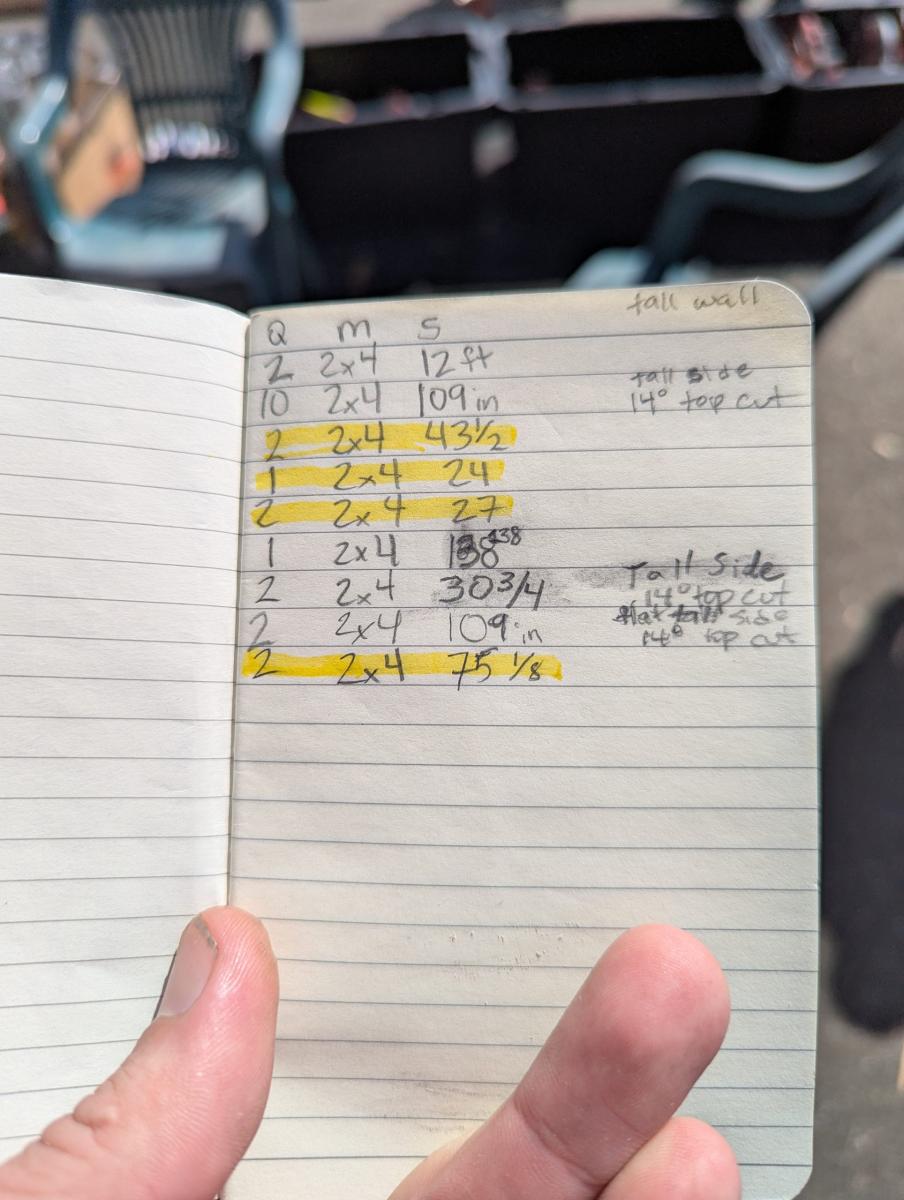 tall wall
Q m S
2 2x4 12 ft
10 2x4 109 in tall side 14° top cut
2 2x4 43 1/2
1 2x4 24
2 2x4 27
1 2x4 138 138
2 2x4 30 3/4 Tall Side 14° top cut
2 2x4 109 in flat tall side 14° top cut
2 2x4 75 1/8